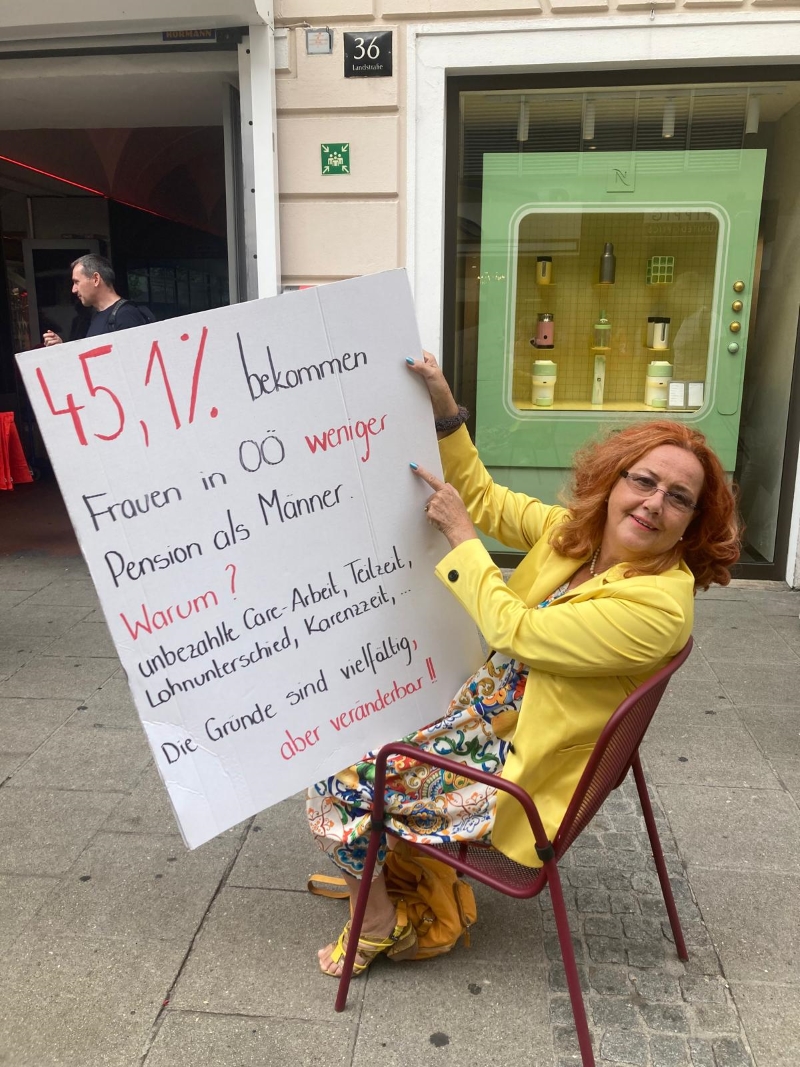 HÖRMANN
36
Landstraße
N
45,1% bekommen
Frauen in OÖ weniger
Pension als Männer.
Warum?
unbezahlte Care-Arbeit, Teilzeit,
Lohnunterschied, Karenzzeit, ...
Die Gründe sind vielfältig,
aber veränderbar!!